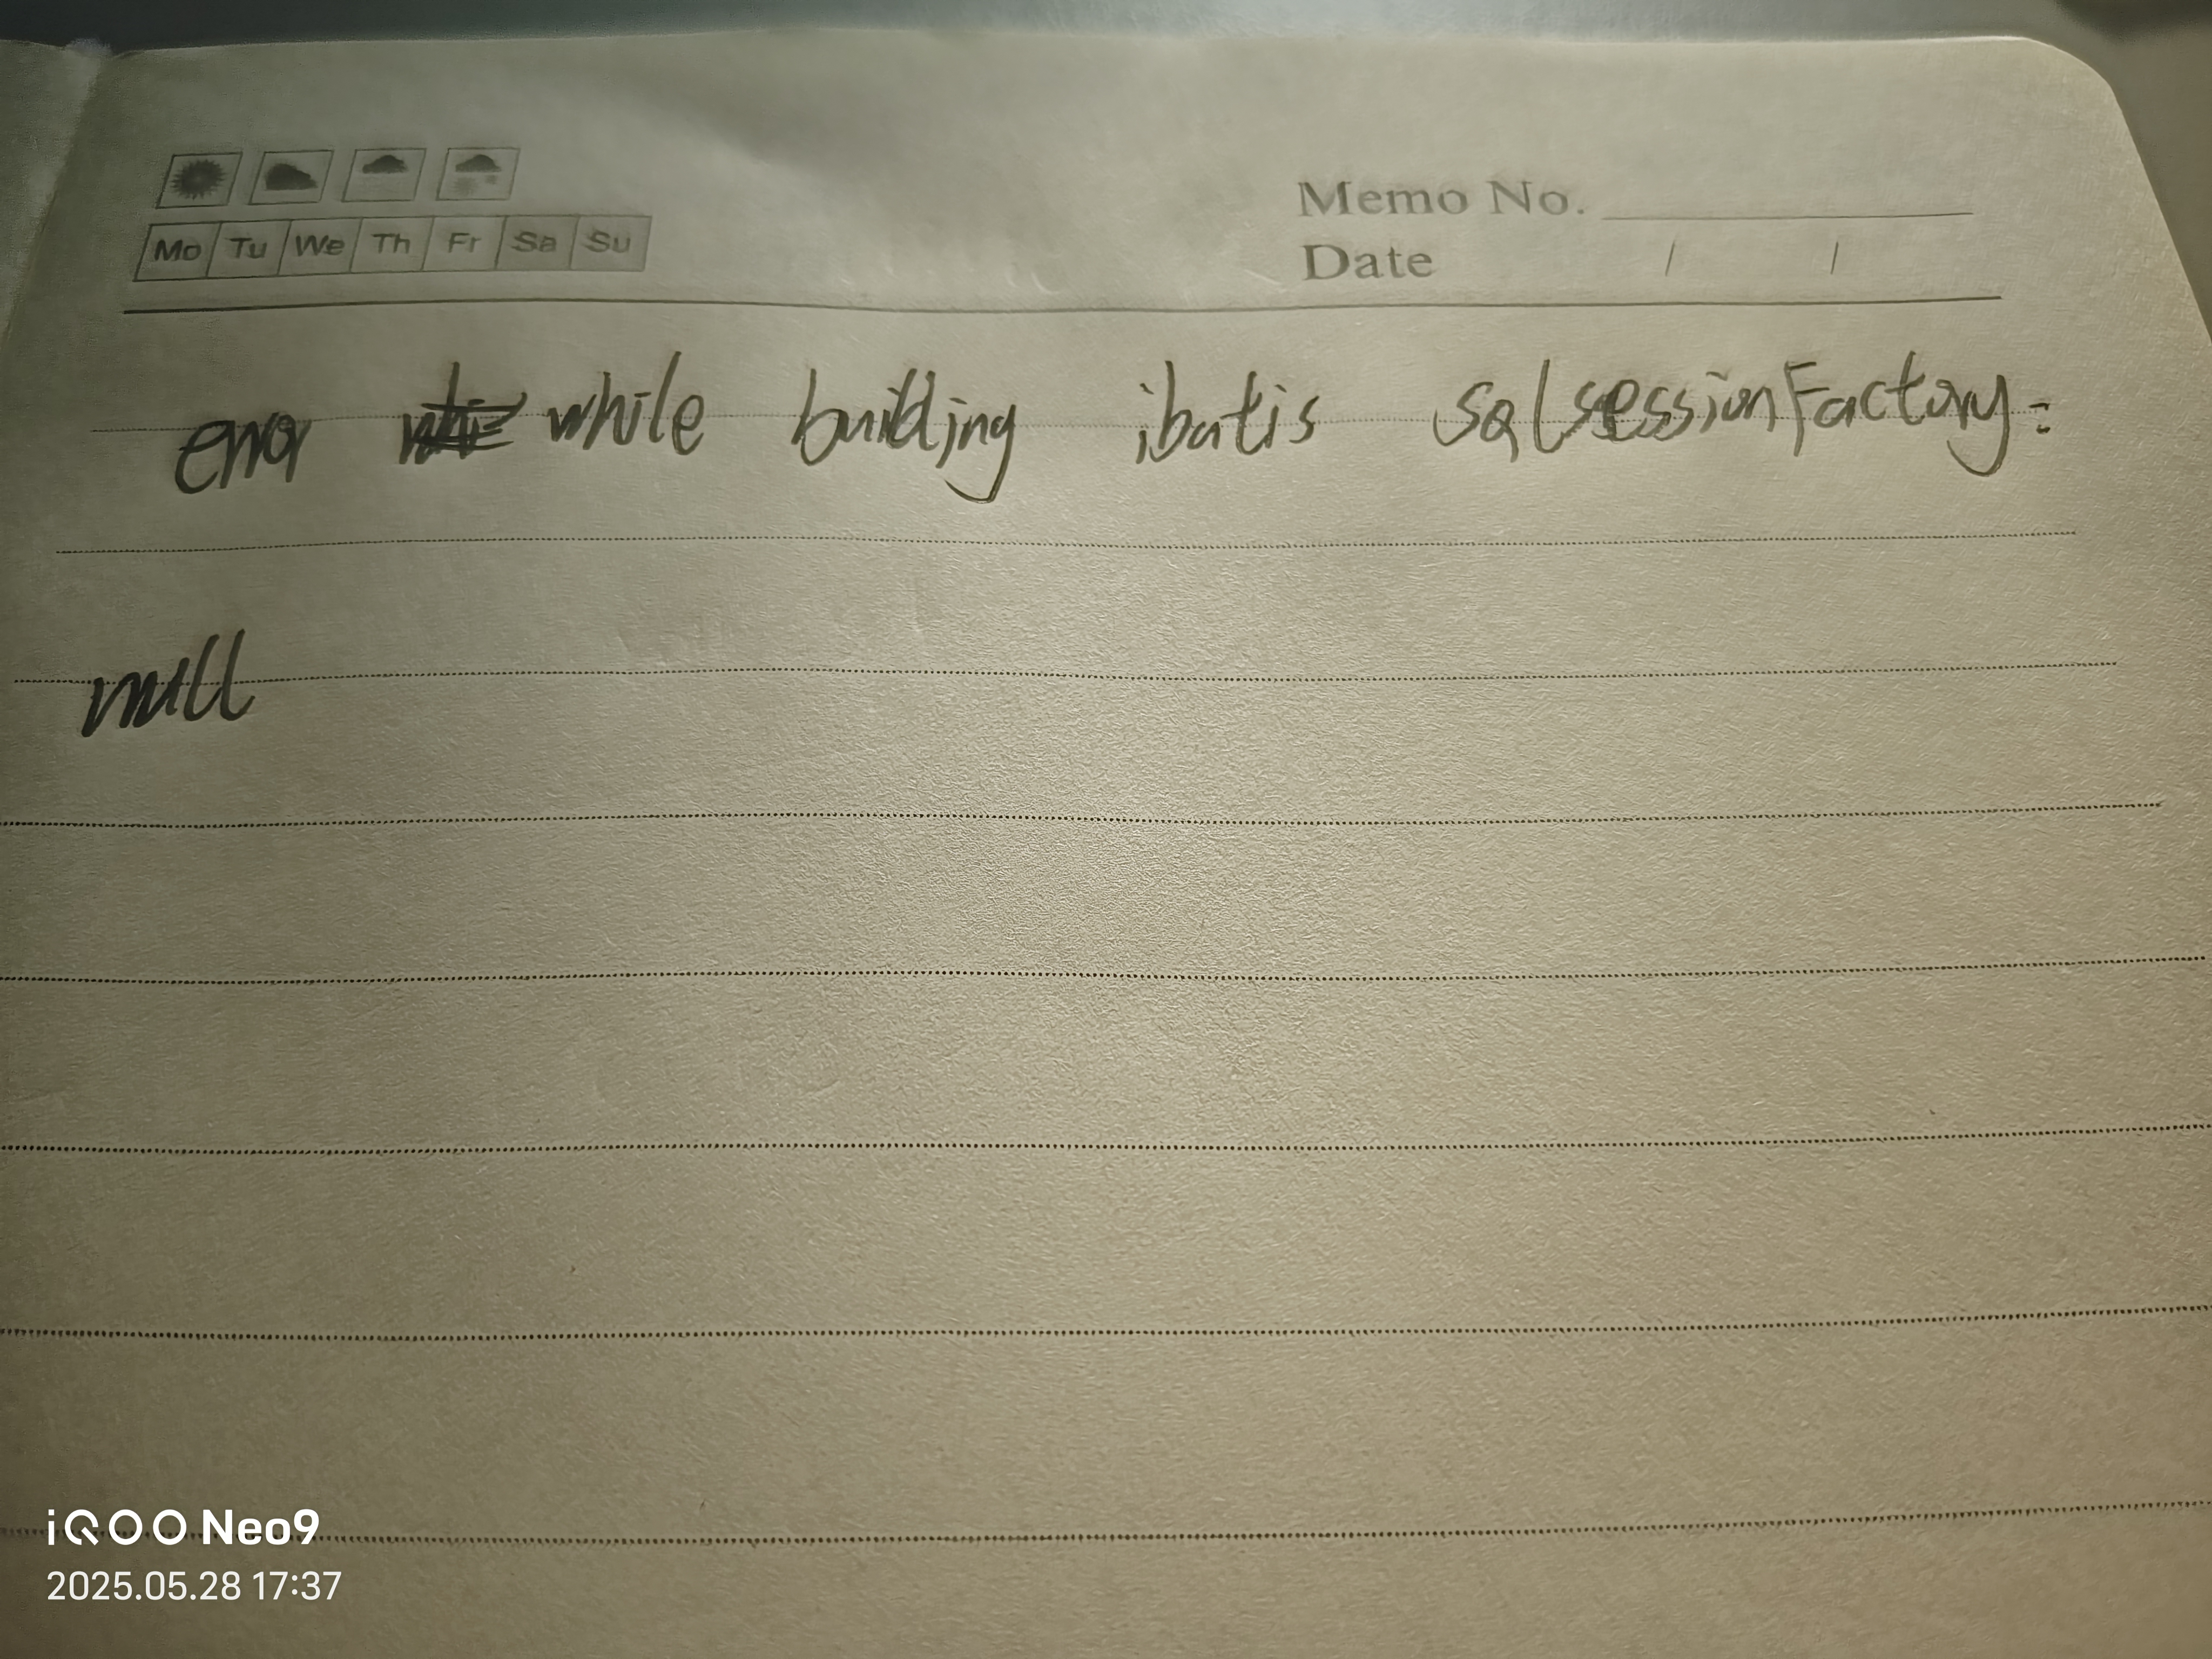 Mo Tu We Th Fr Sa Su
Memo No.
Date / /
error while building ibatis sqlsessionFactory:
null
iQOO Neo9
2025.05.28 17:37